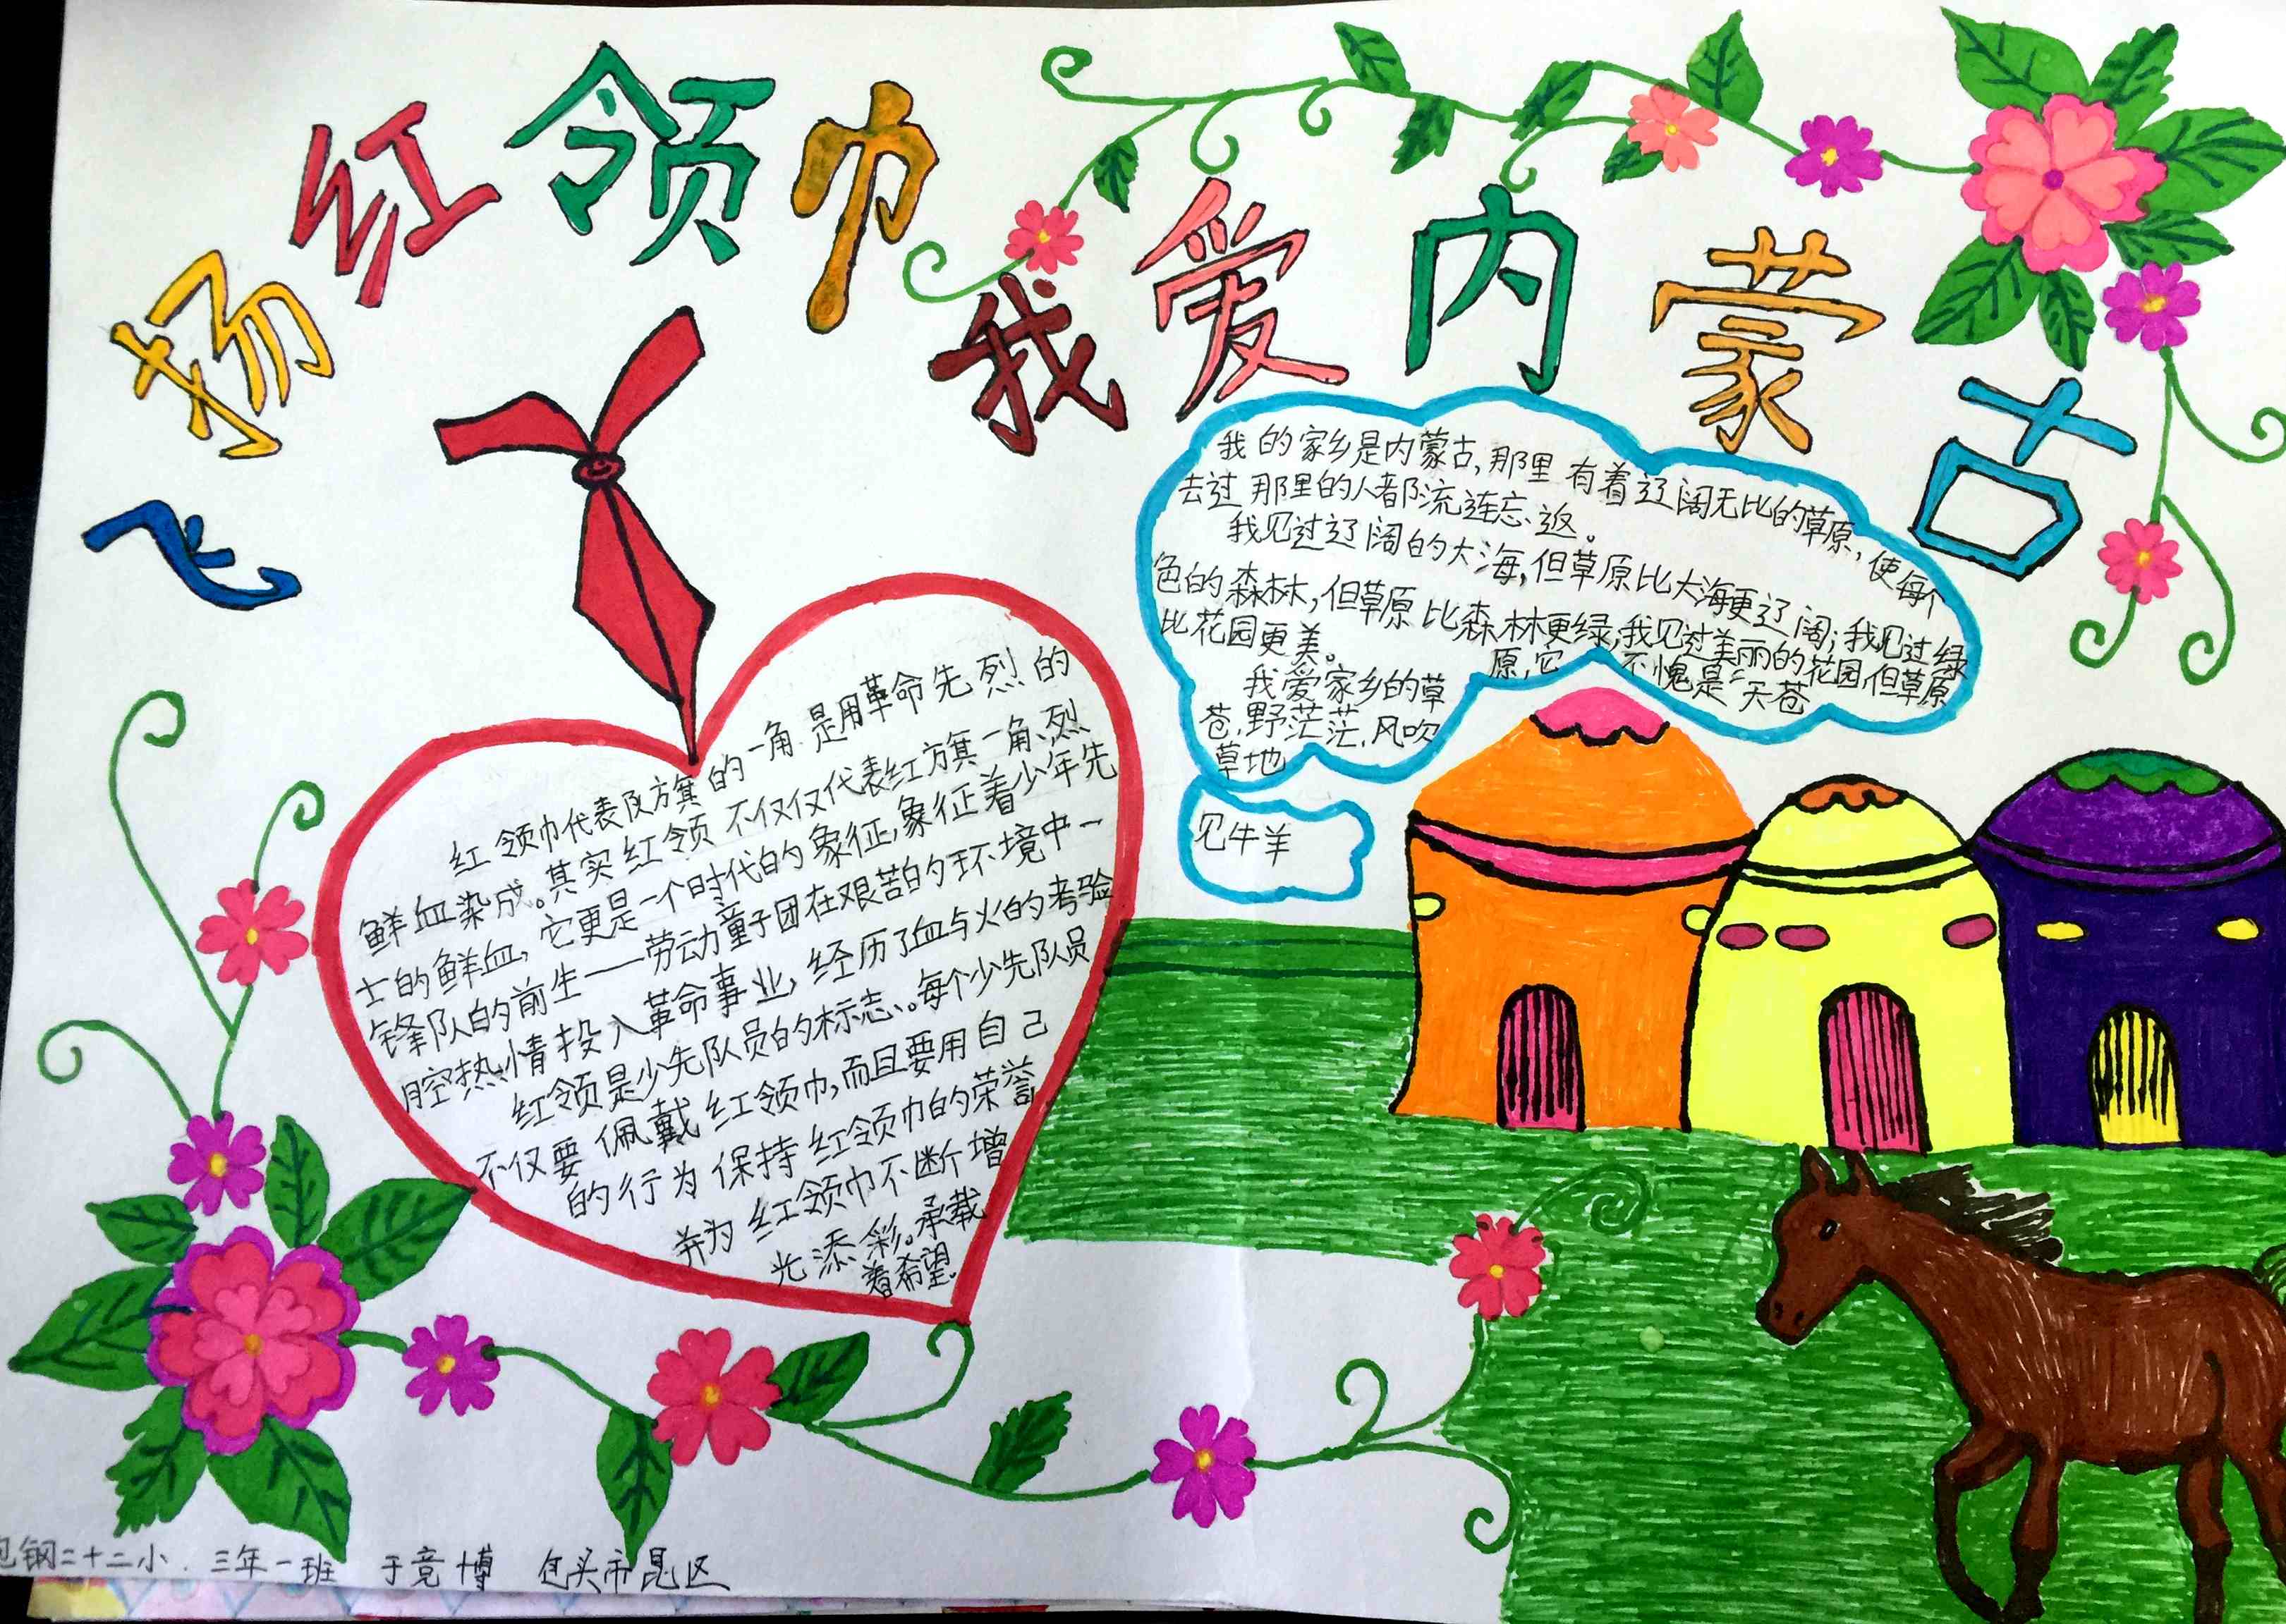 飞扬红领巾
我爱内蒙古
我的家乡是内蒙古,那里有着辽阔无比的草原,使每个
去过那里的人都流连忘返。
我见过辽阔的大海,但草原比大海更辽阔;我见过绿
色的森林,但草原比森林更绿;我见过美丽的花园,但草原
比花园更美。
我爱家乡的草原,它不愧是“天苍
苍,野茫茫,风吹
草地
见牛羊
红领巾代表队方旗的一角.是用革命先烈的
鲜血染成。其实红领不仅仅代表红方旗一角、烈
士的鲜血,它更是一个时代的象征,象征着少年先
锋队的前生——劳动童子团在艰苦的环境中一
腔热情投入革命事业,经历了血与火的考验
红领是少先队员的标志、。每个少先队员
不仅要佩戴红领巾,而且要用自己
的行为保持红领巾的荣誉
并为红领巾不断增
光添彩。承载
着希望.
包钢二十二小.三年一班 于竞博 包头市昆区